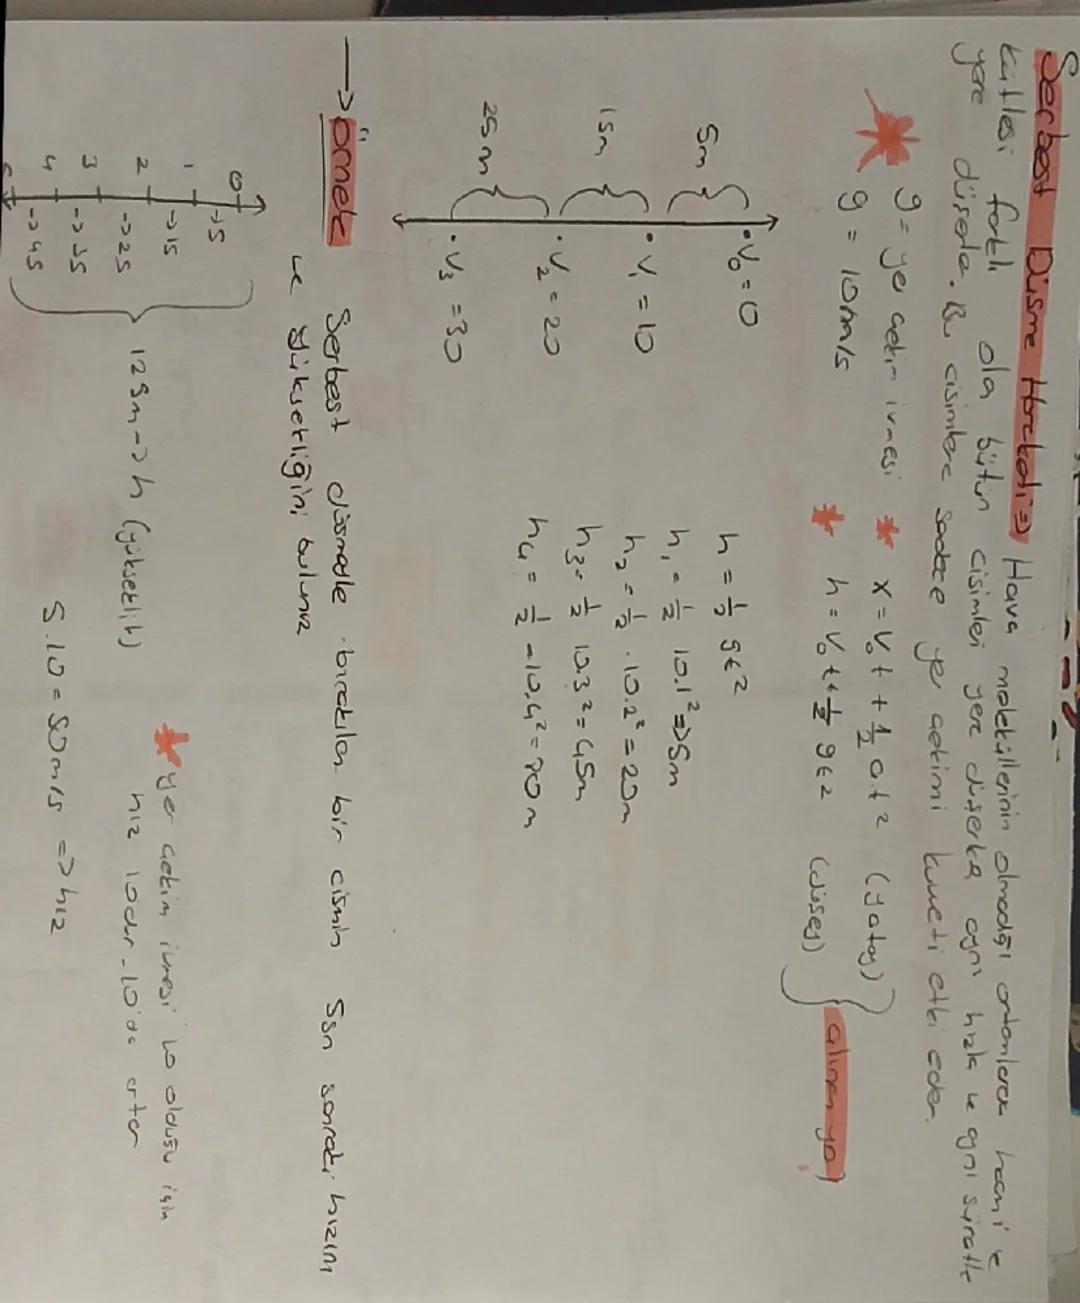 Serbest Düşme Hareketi => Hava moleküllerinin olmadığı ortamlarda hacmi ve
kütlesi farklı olan bütün cisimler yere düşerken aynı hızla ve aynı süratle
yere düşerler. Bu cisimlere sadece yer çekimi kuvveti etki eder.
g = yer çekim ivmesi * x = V₀t + 1/2 a.t² (yatay)
g = 10 m/s * h = V₀t + 1/2 gt² (düşey) } alınan yol
5m } • V₀ = 0
15m } • V₁ = 10
25m } • V₂ = 20
• V₃ = 30
h = 1/2 gt²
h₁ = 1/2 10.1² => 5m
h₂ = 1/2 . 10.2² = 20m
h₃ = 1/2 10.3² = 45m
h₄ = 1/2 - 10.4² = 80m
→ Örnek Serbest düşmadle bırakılan bir cismin 5sn sonraki hızını
ve yüksekliğini bulunuz
0
1 → 5
2 → 15
3 → 25
4 → 35
5 → 45
125m → h (yükseklik)
* yer çekim ivmesi 10 olduğu için
hız 10'dar - 10'da artar
5.10 = 50m/s => hız